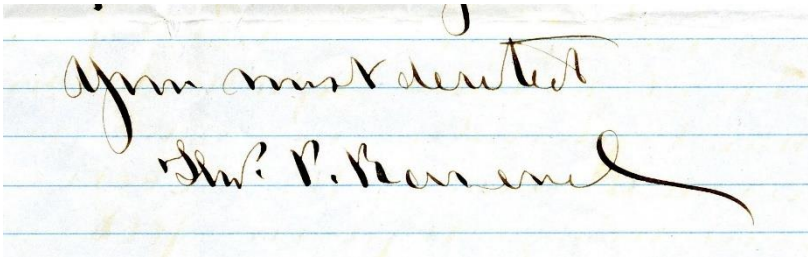 Your most devoted
Thos. P. Ravenel